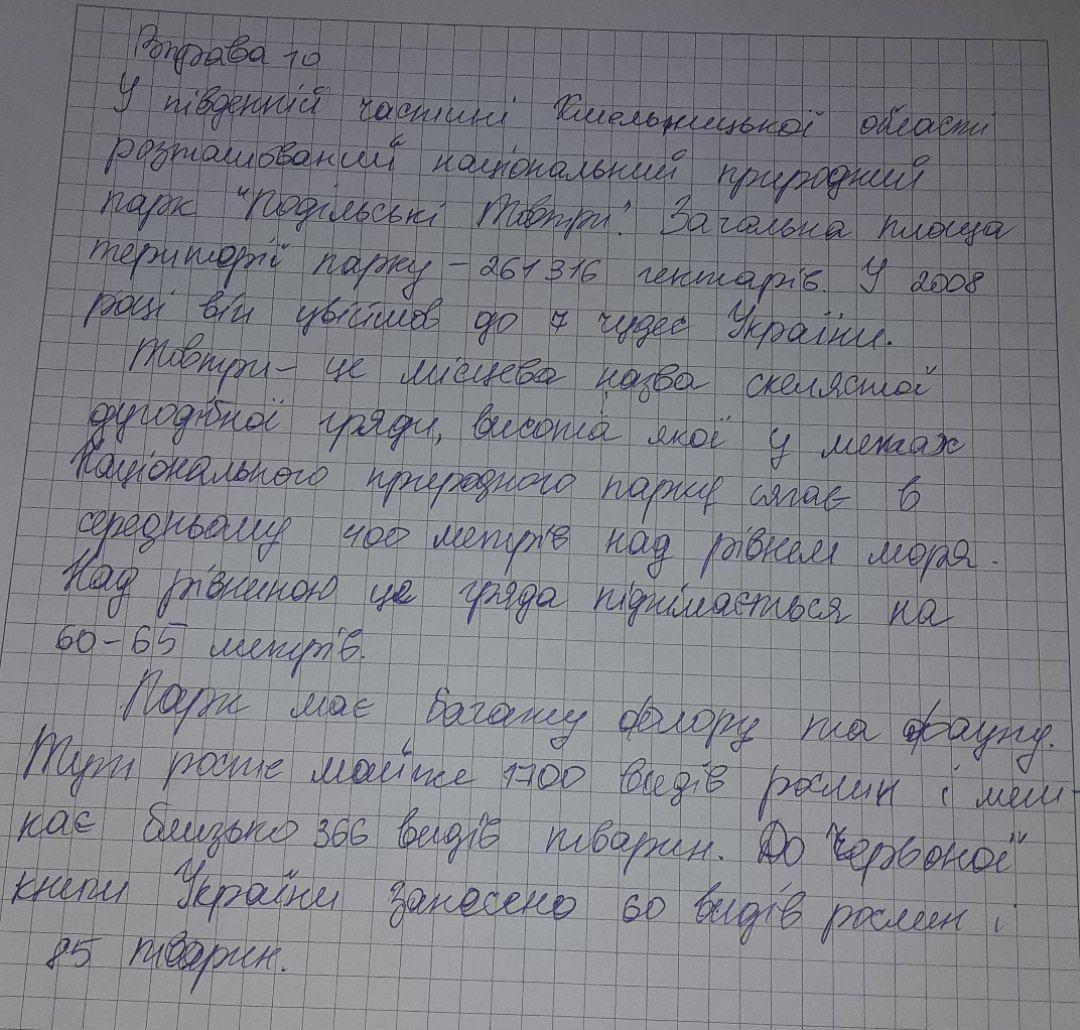 Вправа 10
У південній частині Хмельницької області
розташований національний природний
парк "Подільські Товтри". Загальна площа
території парку – 261316 гектарів. У 2008
році він увійшов до 7 чудес України.
Товтри – це місцева назва скелястої
дугодібної гряди, висота якої у межах
Національного природного парку сягає в
середньому 400 метрів над рівнем моря.
Над рівниною це гряда піднімається на
60-65 метрів.
Парк має багату флору та фауну.
Тут росте майже 1700 видів рослин і меш-
кає близько 366 видів тварин. До "Червоної"
книги України занесено 60 видів рослин і
85 тварин.